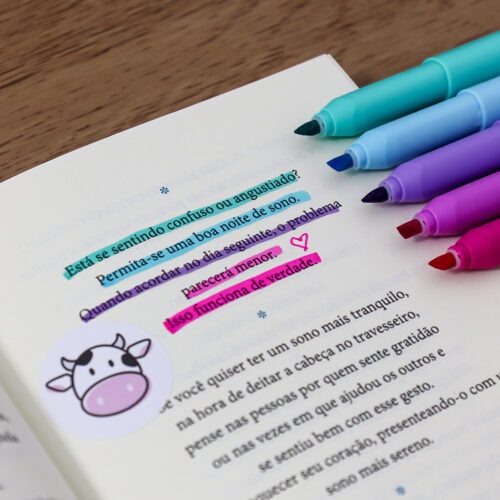 Está se sentindo confuso ou angustiado?
Permita-se uma boa noite de sono.
Quando acordar no dia seguinte, o problema
parecerá menor.
Isso funciona de verdade.
você quiser ter um sono mais tranquilo,
na hora de deitar a cabeça no travesseiro,
pense nas pessoas por quem sente gratidão
ou nas vezes em que ajudou os outros e
se sentiu bem com esse gesto.
seu coração, presenteando-o com
sono mais sereno.